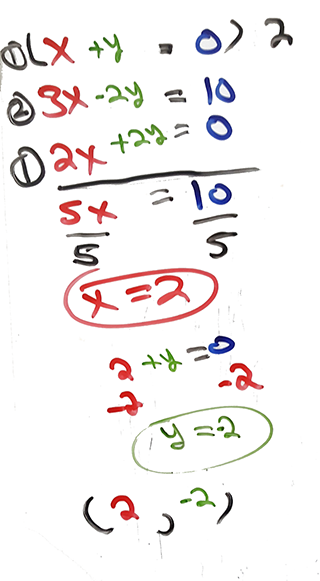 ①(x +y = 0) 2
② 3x -2y = 10
① 2x +2y = 0
5x = 10
5 5
x = 2
2 +y = 0
-2 -2
y = -2
(2, -2)